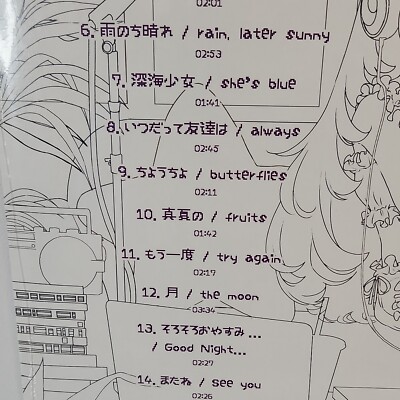 02:01
6. 雨のち晴れ / rain, later sunny
02:53
7. 深海少女 / she's blue
01:41
8. いつだって友達は / always
02:45
9. ちょうちょ / butterflies
02:11
10. 真夏の / fruits
01:42
11. もう一度 / try again
02:17
12. 月 / the moon
03:34
13. そろそろおやすみ...
/ Good Night...
02:27
14. またね / see you
02:26